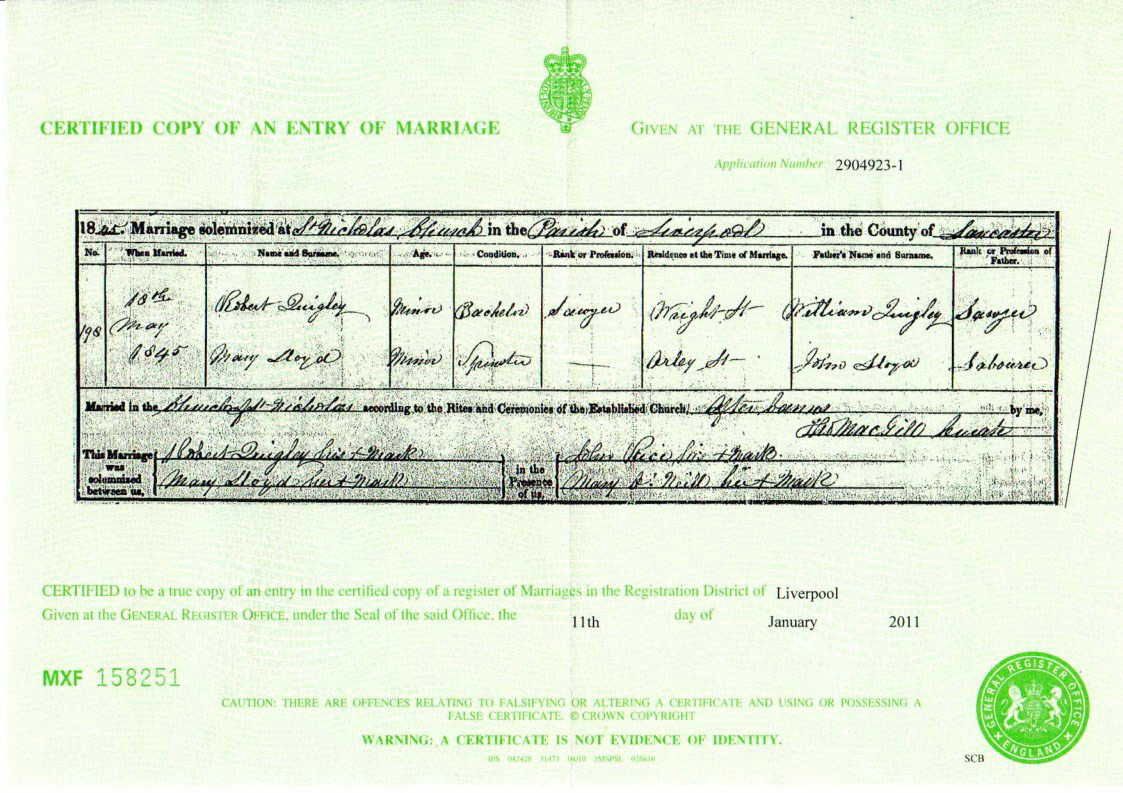 CERTIFIED COPY OF AN ENTRY OF MARRIAGE
GIVEN AT THE GENERAL REGISTER OFFICE
Application Number 2904923-1
1845. Marriage solemnized at St Nicholas Church in the Parish of Liverpool in the County of Lancaster
No. When Married. Name and Surname. Age. Condition. Rank or Profession. Residence at the Time of Marriage. Father's Name and Surname. Rank or Profession of Father.
198 18th May 1845
Robert Quigley Minor Bachelor Sawyer Wright St William Quigley Sawyer
Mary Lloyd Minor Spinster — Arley St John Lloyd Labourer
Married in the Church of St Nicholas according to the Rites and Ceremonies of the Established Church, After banns by me,
MacGill Curate
This Marriage was solemnized between us,
Robert Quigley his + Mark
Mary Lloyd her + Mark
in the Presence of us,
John Price his + Mark
Mary O'Neill her + Mark
CERTIFIED to be a true copy of an entry in the certified copy of a register of Marriages in the Registration District of Liverpool
Given at the GENERAL REGISTER OFFICE, under the Seal of the said Office, the 11th day of January 2011
MXF 158251
CAUTION: THERE ARE OFFENCES RELATING TO FALSIFYING OR ALTERING A CERTIFICATE AND USING OR POSSESSING A
FALSE CERTIFICATE. © CROWN COPYRIGHT
WARNING: A CERTIFICATE IS NOT EVIDENCE OF IDENTITY.
GENERAL REGISTER OFFICE
ENGLAND
SCB